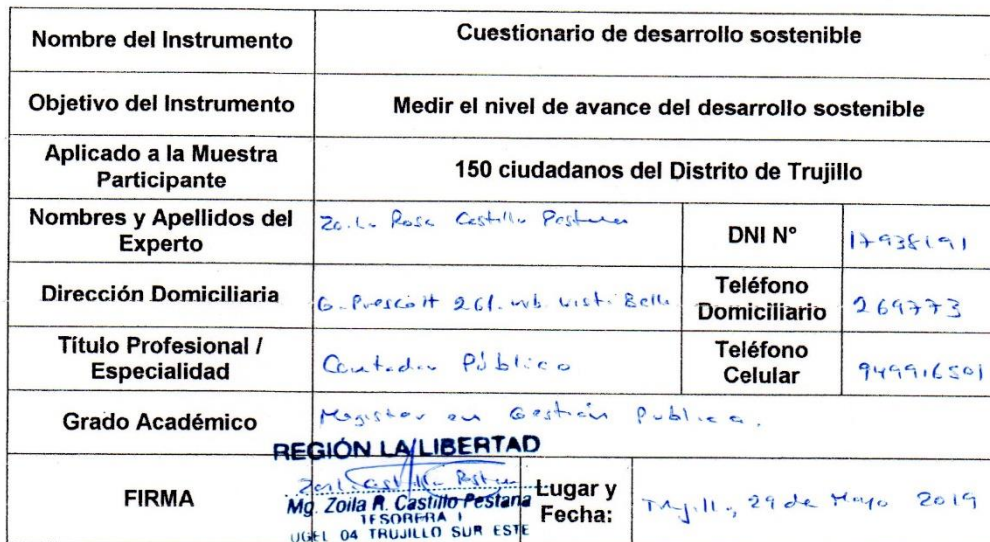 Nombre del Instrumento Cuestionario de desarrollo sostenible
Objetivo del Instrumento Medir el nivel de avance del desarrollo sostenible
Aplicado a la Muestra
Participante
150 ciudadanos del Distrito de Trujillo
Nombres y Apellidos del
Experto
Zoila Rosa Castillo Pestana
DNI N°
17938191
Dirección Domiciliaria
G. Prescott 261. urb. Vista Bella
Teléfono
Domiciliario
269773
Título Profesional /
Especialidad
Contador Público
Teléfono
Celular
949916501
Grado Académico Magister en Gestión Publica.
REGIÓN LA LIBERTAD
FIRMA
Mg. Zoila R. Castillo Pestana
TESORERA I
UGEL 04 TRUJILLO SUR ESTE
Lugar y
Fecha:
Trujillo, 29 de Mayo 2019